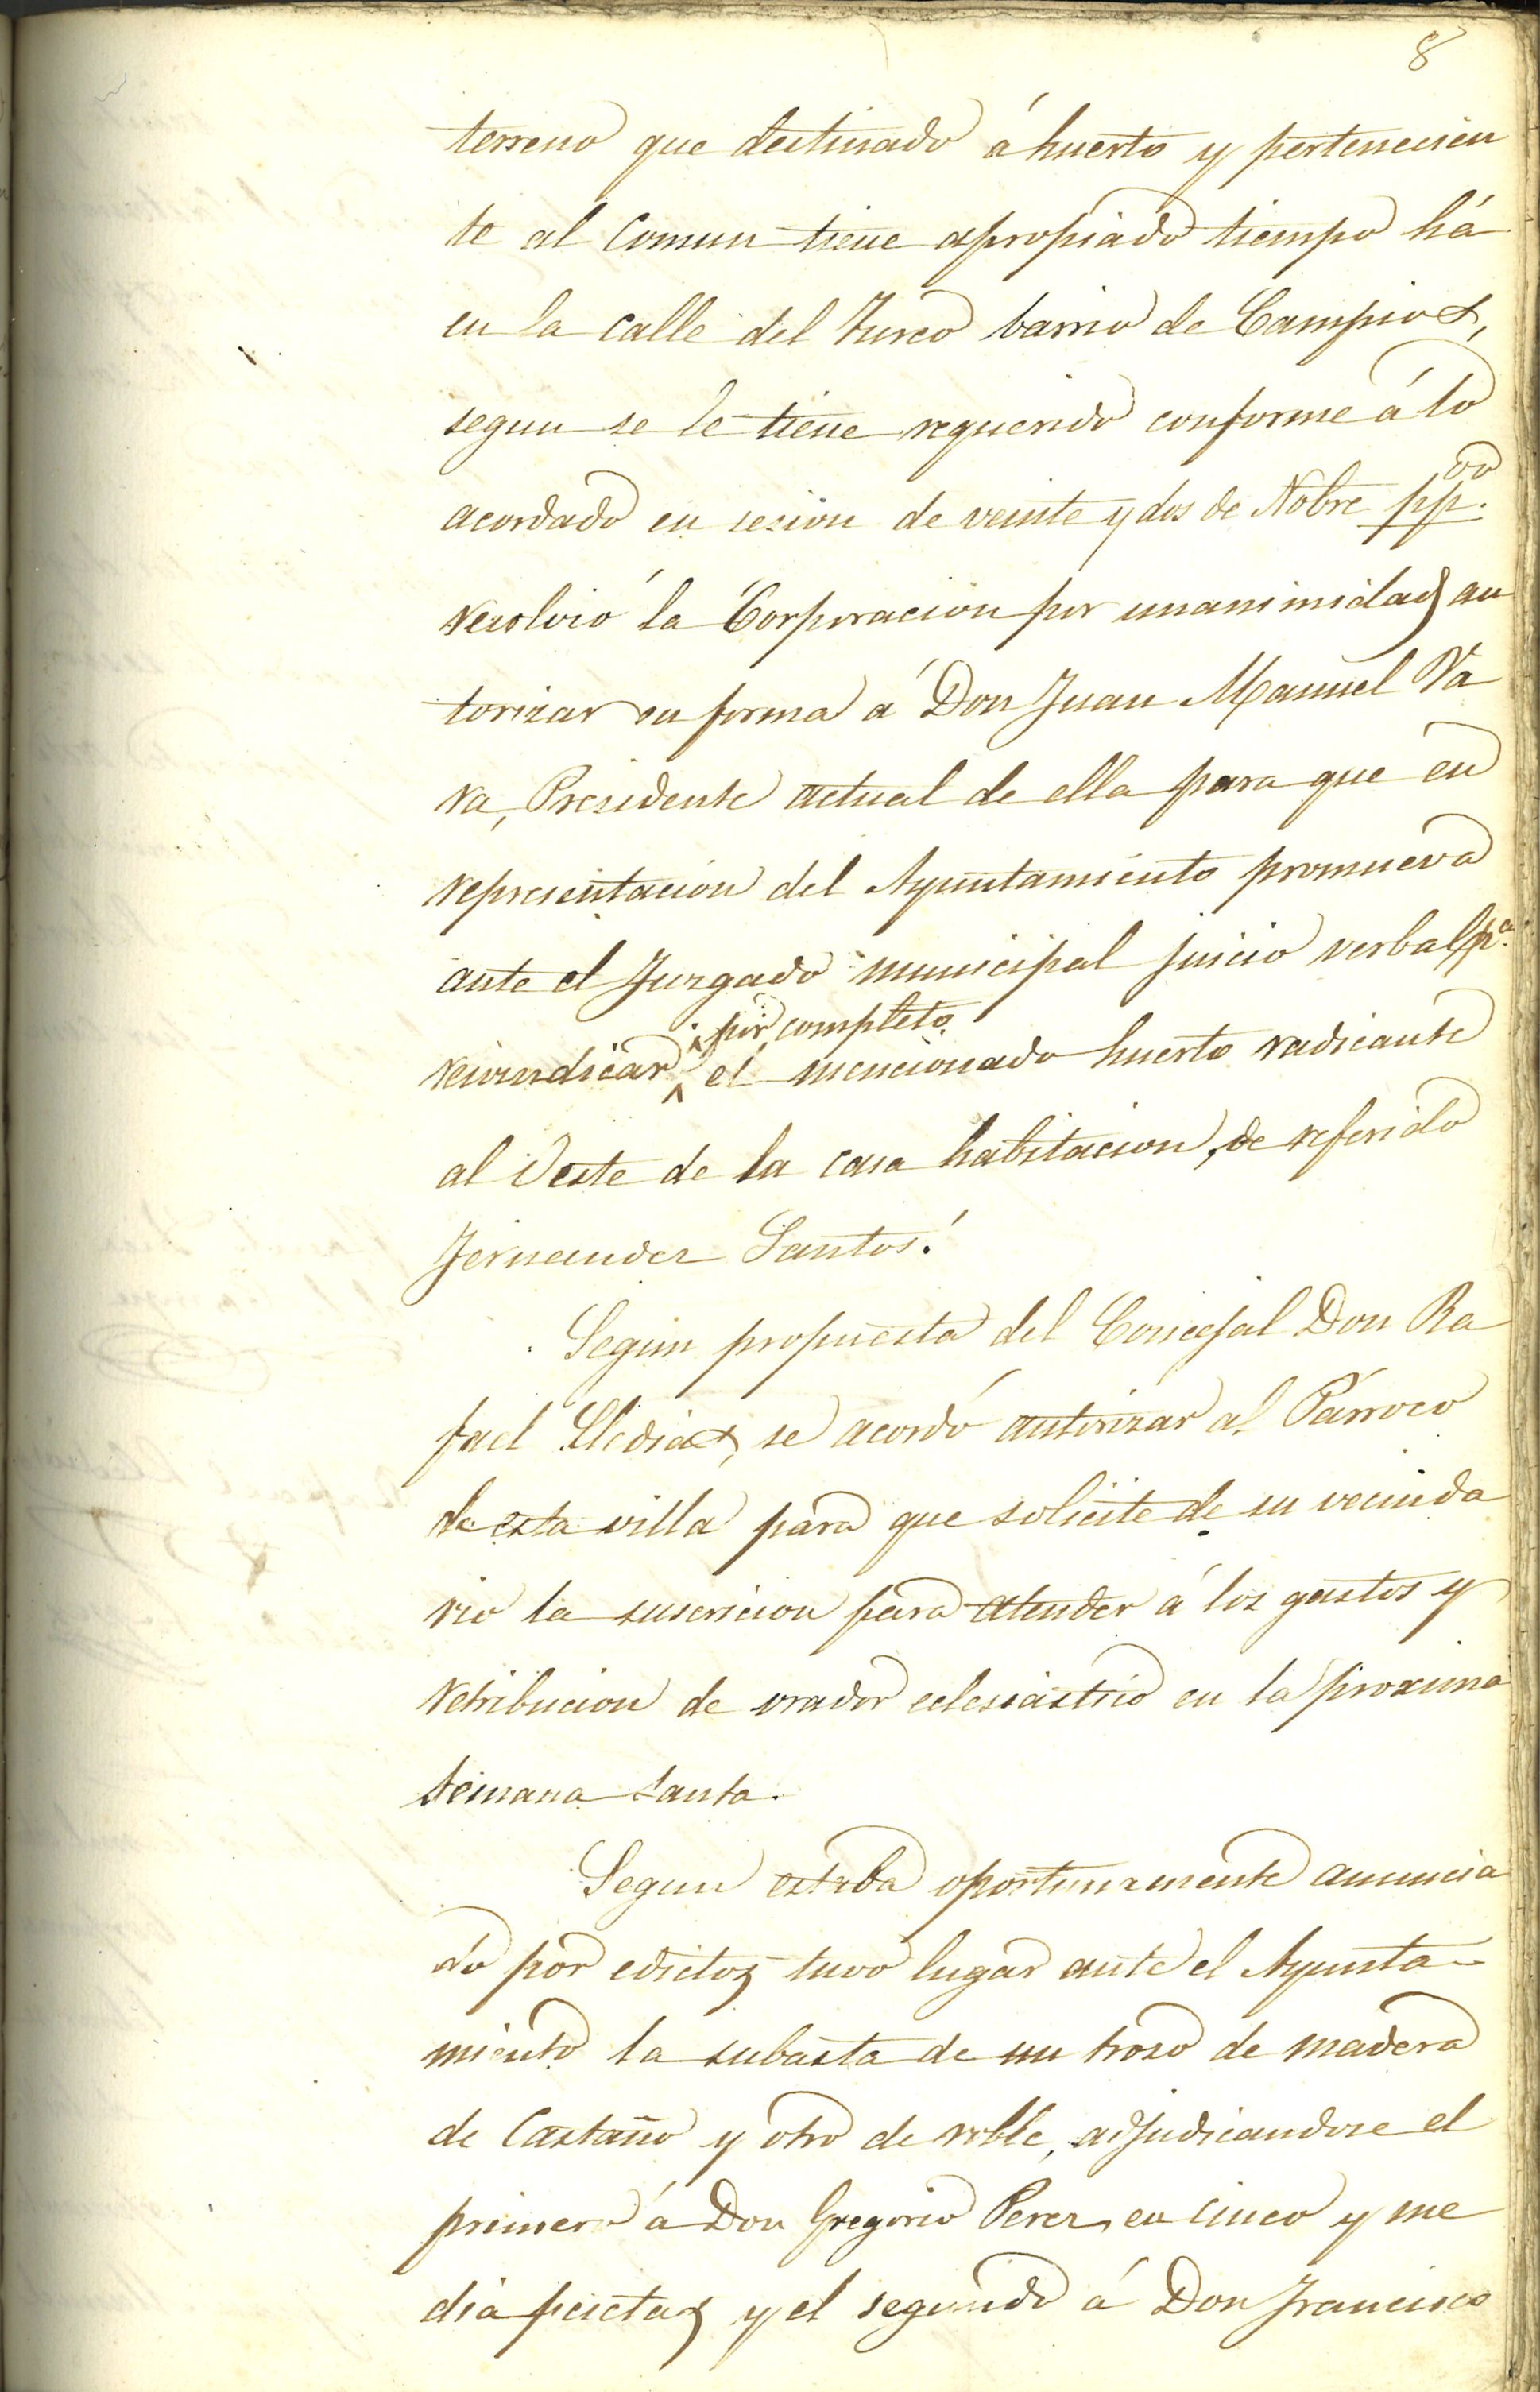 8
terreno que destinado á huerto y pertenecien
te al Comun tiene apropiado tiempo há
en la calle del Turco barrio de Campios,
segun se le tiene requerido conforme á lo
acordado en sesion de veinte y dos de Nobre pp.do
resolvió la Corporacion por unanimidad au
torizar en forma á Don Juan Manuel Va
ra, Presidente actual de ella para que en
representacion del Ayuntamiento promueva
ante el Juzgado municipal juicio verbal pa.
por completo
reivindicar el mencionado huerto radicante
al Oeste de la casa habitacion, de referido
Fernandez Santos.
Segun propuesta del Concejal Don Ra
fael Lledias, se acordó autorizar al Párroco
de esta villa para que solicite de su vecinda
rio la suscricion para atender á los gastos y
retribucion de orador eclesiástico en la proxima
semana santa.
Segun estaba oportunamente anuncia
do por edictos tuvo lugar ante el Ayunta-
miento la subasta de un troso de madera
de Castaño y otro de roble, adjudicandose el
primero á Don Gregorio Perez, en cinco y me
dia pesetas y el segundo á Don Francisco